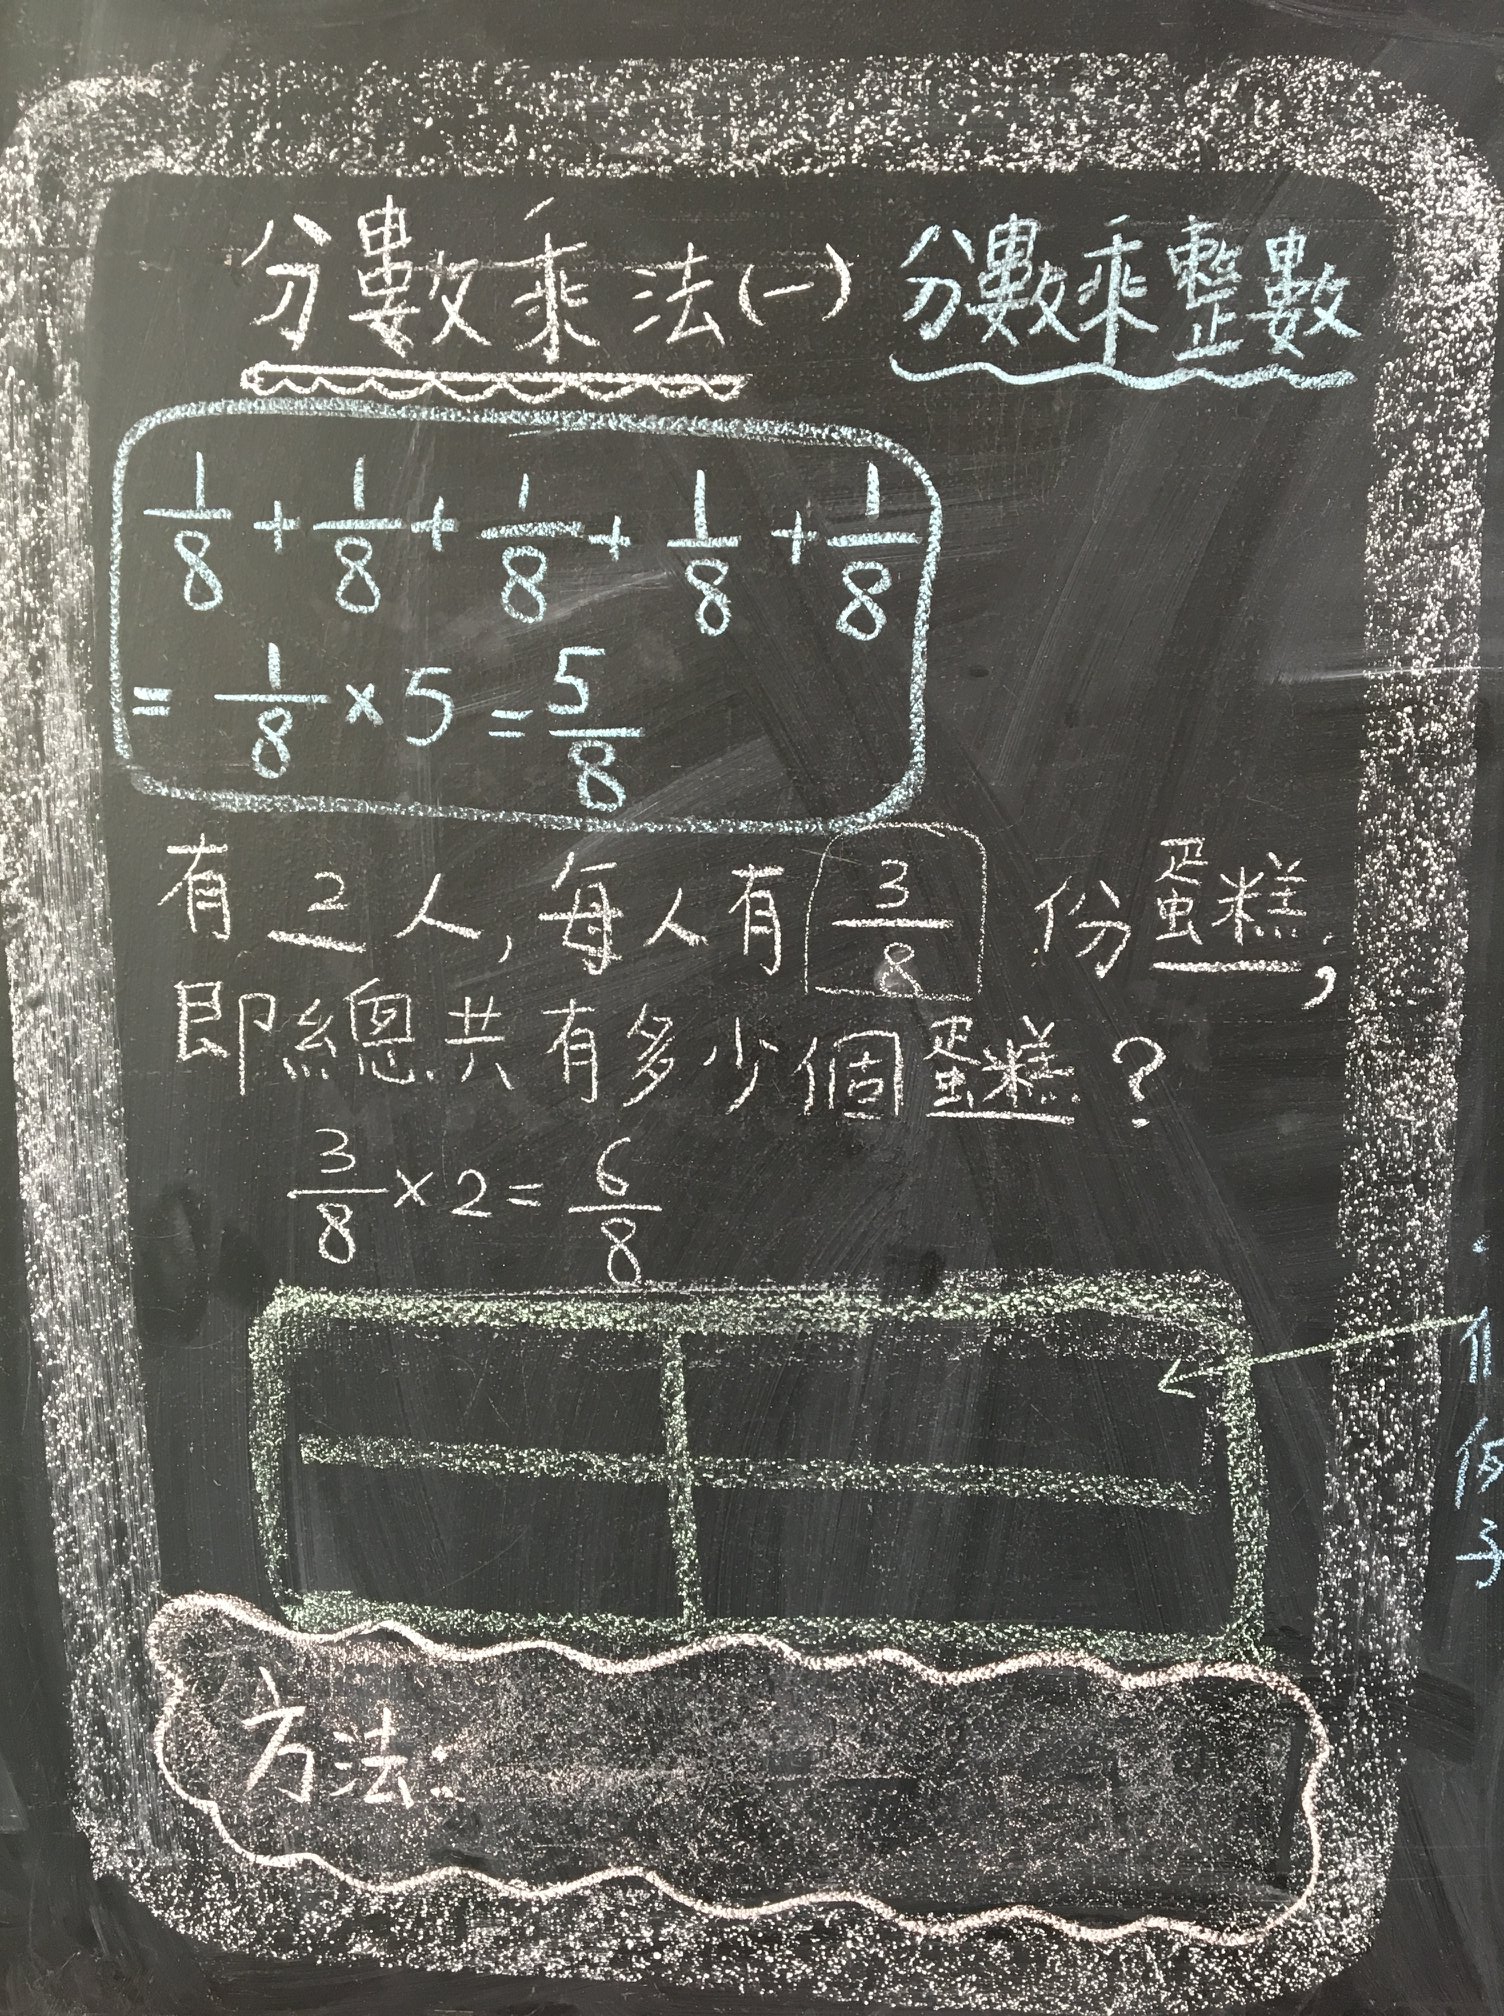 分數乘法(一) 分數乘整數
1/8 + 1/8 + 1/8 + 1/8 + 1/8
= 1/8 × 5 = 5/8
有 2 人, 每人有 3/8 份蛋糕,
即總共有多少個蛋糕?
3/8 × 2 = 6/8
方法:
子